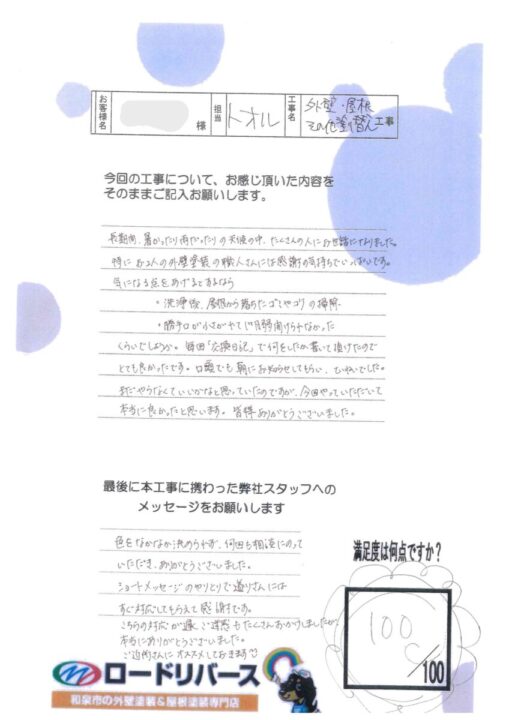 お客様名 様 担当 トオル 工事名 外壁・屋根 その他塗替え 工事
今回の工事について、お感じ頂いた内容を
そのままご記入お願いします。
長期間、暑かったり雨だったりの天候の中、たくさんの人にお世話になりました。
特にお2人の外壁塗装の職人さんには感謝の気持ちでいっぱいです。
気になる点をあげるとするなら
・洗浄後、屋根から落ちたゴミやホコリの掃除
・勝手口が小さかやてし 開けられなかった
くらいでしょうか。毎回「交換日記」で何をしたか書いて頂けたので
とても良かったです。口頭でも朝にお知らせしてもらい、
まだやらなくていいかなと思っていたのですが、今回やっていただいて
本当に良かったと思います。皆様ありがとうございました。
最後に本工事に携わった弊社スタッフへの
メッセージをお願いします
色をなかなか決められず、何回も相談にのって
いただき、ありがとうございました。
ショートメッセージのやりとりで道りさんには
すぐ対応してもらえて感謝です。
こちらの対応が遅くご迷惑もたくさんおかけしましたが、
本当にありがとうございました。
ご近所さんにオススメしておきます
満足度は何点ですか?
100
/100
ロードリバース
和泉市の外壁塗装&屋根塗装専門店